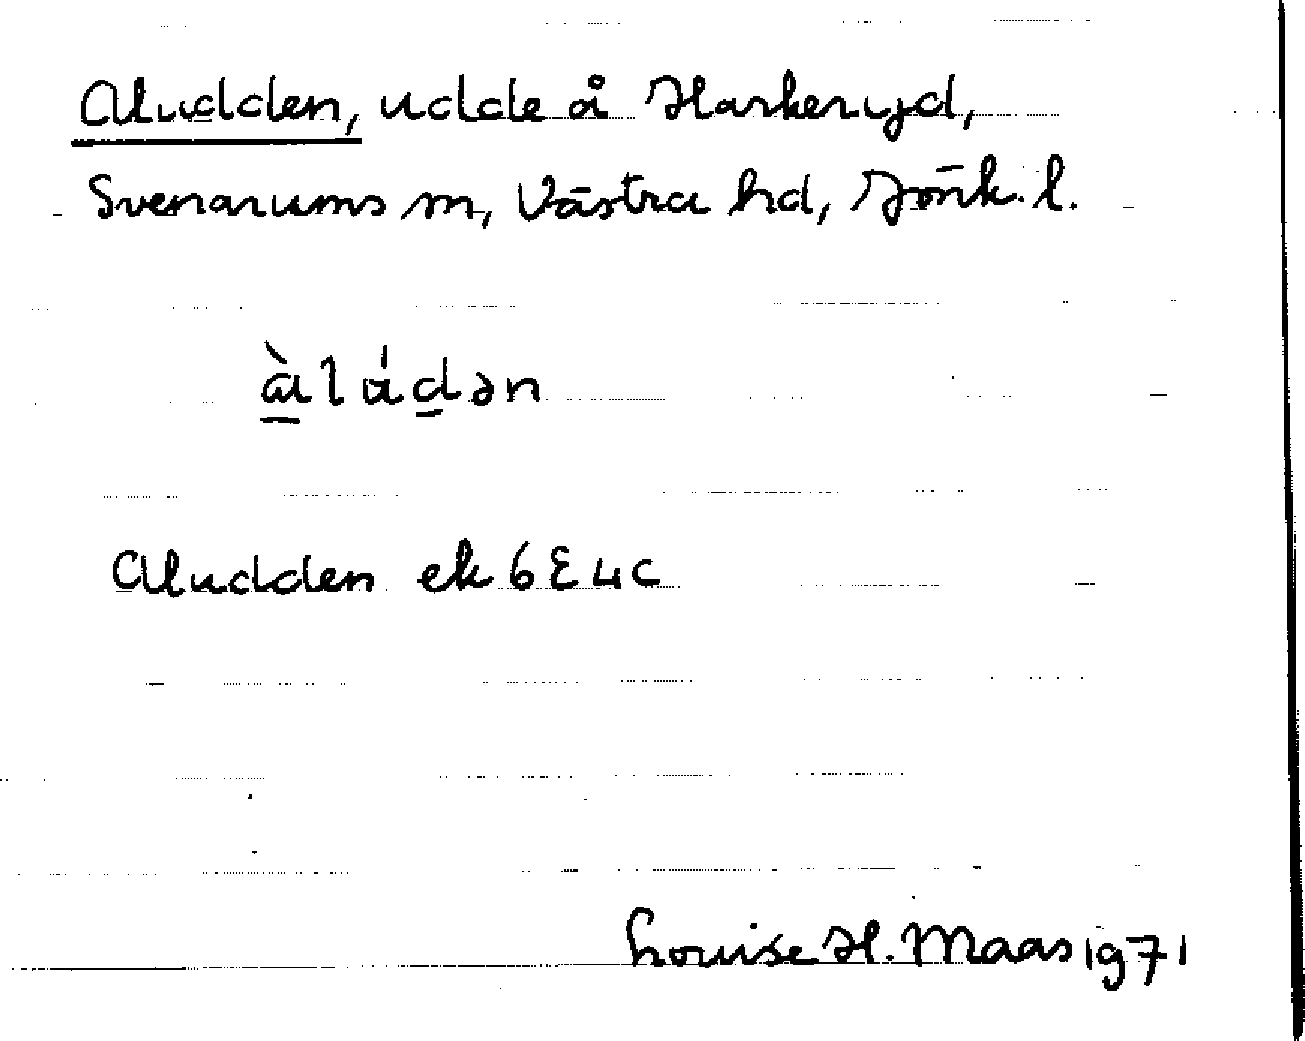 Aludden, udde å Harkeryd,
Svenarums sn, Västra hd, Jönk. l.
àládən
Aludden ek 6E4c
Louise H. Maas 1971